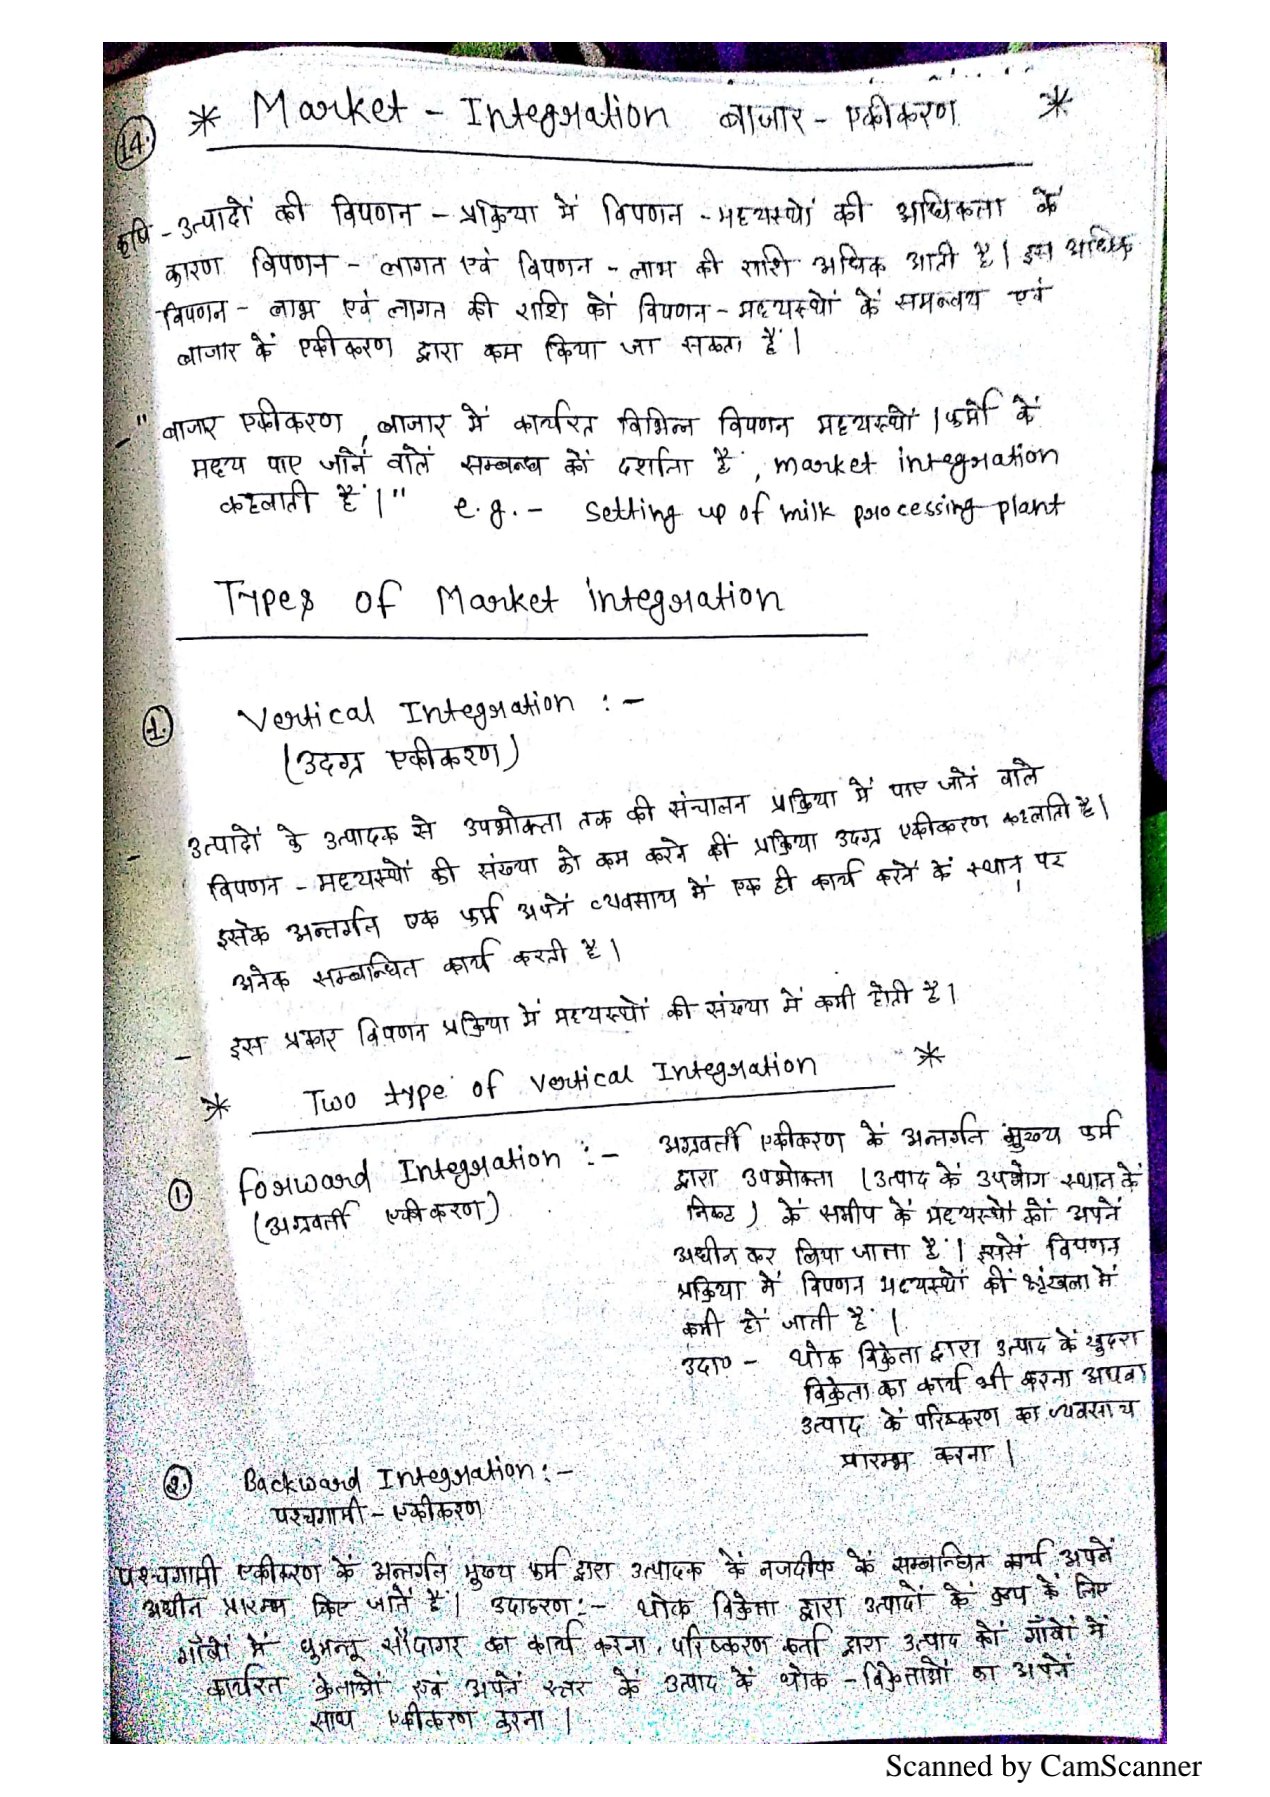 14.
* Market - Integration बाजार - एकीकरण *
कृषि - उत्पादों की विपणन - प्रक्रिया में विपणन - मध्यस्थों की अधिकता के
कारण विपणन - लागत एवं विपणन - लाभ की राशि अधिक आती है। इस अधिक
विपणन - लाभ एवं लागत की राशि कों विपणन - मध्यस्थों के समन्वय एवं
बाजार कें एकीकरण द्वारा कम किया जा सकता हैं।
- " बाजार एकीकरण, बाजार में कार्यरत विभिन्न विपणन मध्यस्थों । फर्मो कें
मध्य पाए जानें वालें सम्बन्ध कों दर्शाता है, market integration
कहलाती हैं।" e.g. - Setting up of milk processing plant
Types of Market integration
1. Vertical Integration : -
(उदग्र एकीकरण)
- उत्पादों के उत्पादक से उपभोक्ता तक की संचालन प्रक्रिया में पाए जानें वाले
विपणन - मध्यस्थों की संख्या को कम करने कीं प्रक्रिया उदग्र एकीकरण कहलाती है।
इसके अन्तर्गत एक फर्म अपनें व्यवसाय में एक ही कार्य करनें कें स्थान पर
अनेक सम्बन्धित कार्य करती है।
- इस प्रकार विपणन प्रक्रिया में मध्यस्थों की संख्या में कमी होती है।
* Two type of vertical Integration *
1. forward Integration : -
(अग्रवर्ती एकीकरण)
अग्रवर्ती एकीकरण कें अन्तर्गत मुख्य फर्म
द्वारा उपभोक्ता (उत्पाद कें उपभोग स्थान कें
निकट) कें समीप कें मध्यस्थों कों अपनें
अधीन कर लिया जाता हैं। इससें विपणन
प्रक्रिया में विपणन मध्यस्थों कीं श्रृंखला में
कमी हों जाती हैं।
उदा० - थोक विक्रेता द्वारा उत्पाद कें खुदरा
विक्रेता का कार्य भी करना अथवा
उत्पाद कें परिष्करण का व्यवसाय
प्रारम्भ करना।
2. Backward Integration : -
पश्चगामी - एकीकरण
पश्चगामी एकीकरण कें अन्तर्गत मुख्य फर्म द्वारा उत्पादक कें नजदीक कें सम्बन्धित कार्य अपनें
अधीन प्रारम्भ किए जातें हैं। उदाहरण : - थोक विक्रेता द्वारा उत्पादों कें क्रय कें लिए
गाँवों में घुमन्तू सौदागर का कार्य करना, परिष्करण कर्ता द्वारा उत्पाद कों गाँवों में
कार्यरत क्रेताओं एवं अपनें स्तर कें उत्पाद कें थोक - विक्रेताओं का अपनें
साथ एकीकरण करना।
Scanned by CamScanner